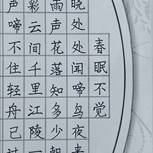 春眠不觉
晓处处闻啼鸟夜来
雨声花落知多少朝
彩云间千里江陵一
声啼不住轻舟已过